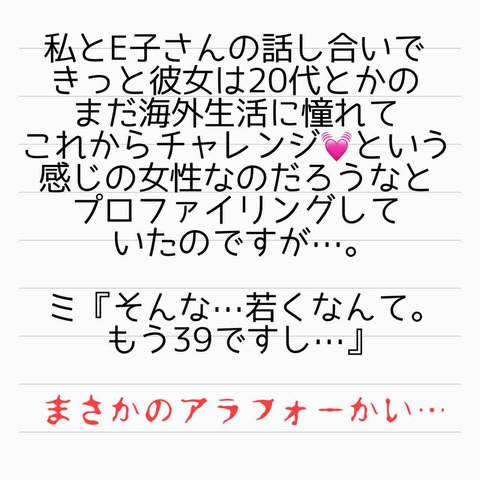 私とE子さんの話し合いで
きっと彼女は20代とかの
まだ海外生活に憧れて
これからチャレンジ💓という
感じの女性なのだろうなと
プロファイリングして
いたのですが…。
ミ『そんな…若くなんて。
もう39ですし…』
まさかのアラフォーかい…